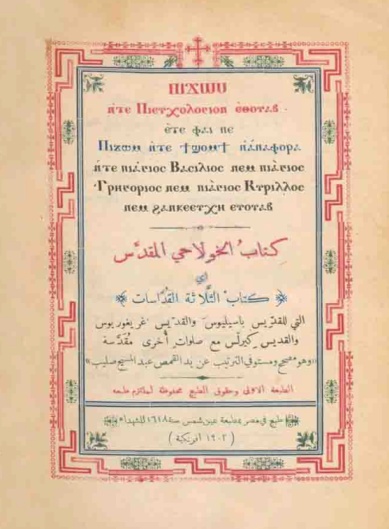 ⲠⲒϪⲰⲘ
ⲛ̀ⲧⲉ Ⲡⲓⲉⲩⲭⲟⲗⲟⲅⲓⲟⲛ ⲉⲑⲟⲩⲁⲃ
ⲉⲧⲉ ⲫⲁⲓ ⲡⲉ
Ⲡⲓϫⲱⲙ ⲛ̀ⲧⲉ ϯϣⲟⲙϯ ⲛ̀ⲁⲛⲁⲫⲟⲣⲁ
ⲛ̀ⲧⲉ ⲡⲓⲁ̀ⲅⲓⲟⲥ Ⲃⲁⲥⲓⲗⲓⲟⲥ ⲛⲉⲙ ⲡⲓⲁ̀ⲅⲓⲟⲥ
Ⲅⲣⲏⲅⲟⲣⲓⲟⲥ ⲛⲉⲙ ⲡⲓⲁ̀ⲅⲓⲟⲥ Ⲕⲩⲣⲓⲗⲗⲟⲥ
ⲛⲉⲙ ϩⲁⲛⲕⲉⲉⲩⲭⲏ ⲉⲩⲟⲩⲁⲃ
كتاب الخولاجي المقدس
أي
كتاب الثلاثة القداسات
التي للقديس باسيليوس والقديس غريغوريوس
والقديس كيرلس مع صلوات أخرى مقدسة
«وهو مصحح ومستوفي الترتيب عن يد القمص عبد المسيح صليب»
الطبعة الاولى وحقوق الطبع محفوظة لملتزم طبعه
طبع في مصر بمطبعة عين شمس سنة ١٦١٨ للشهداء
(١٩٠٢ افرنكية)